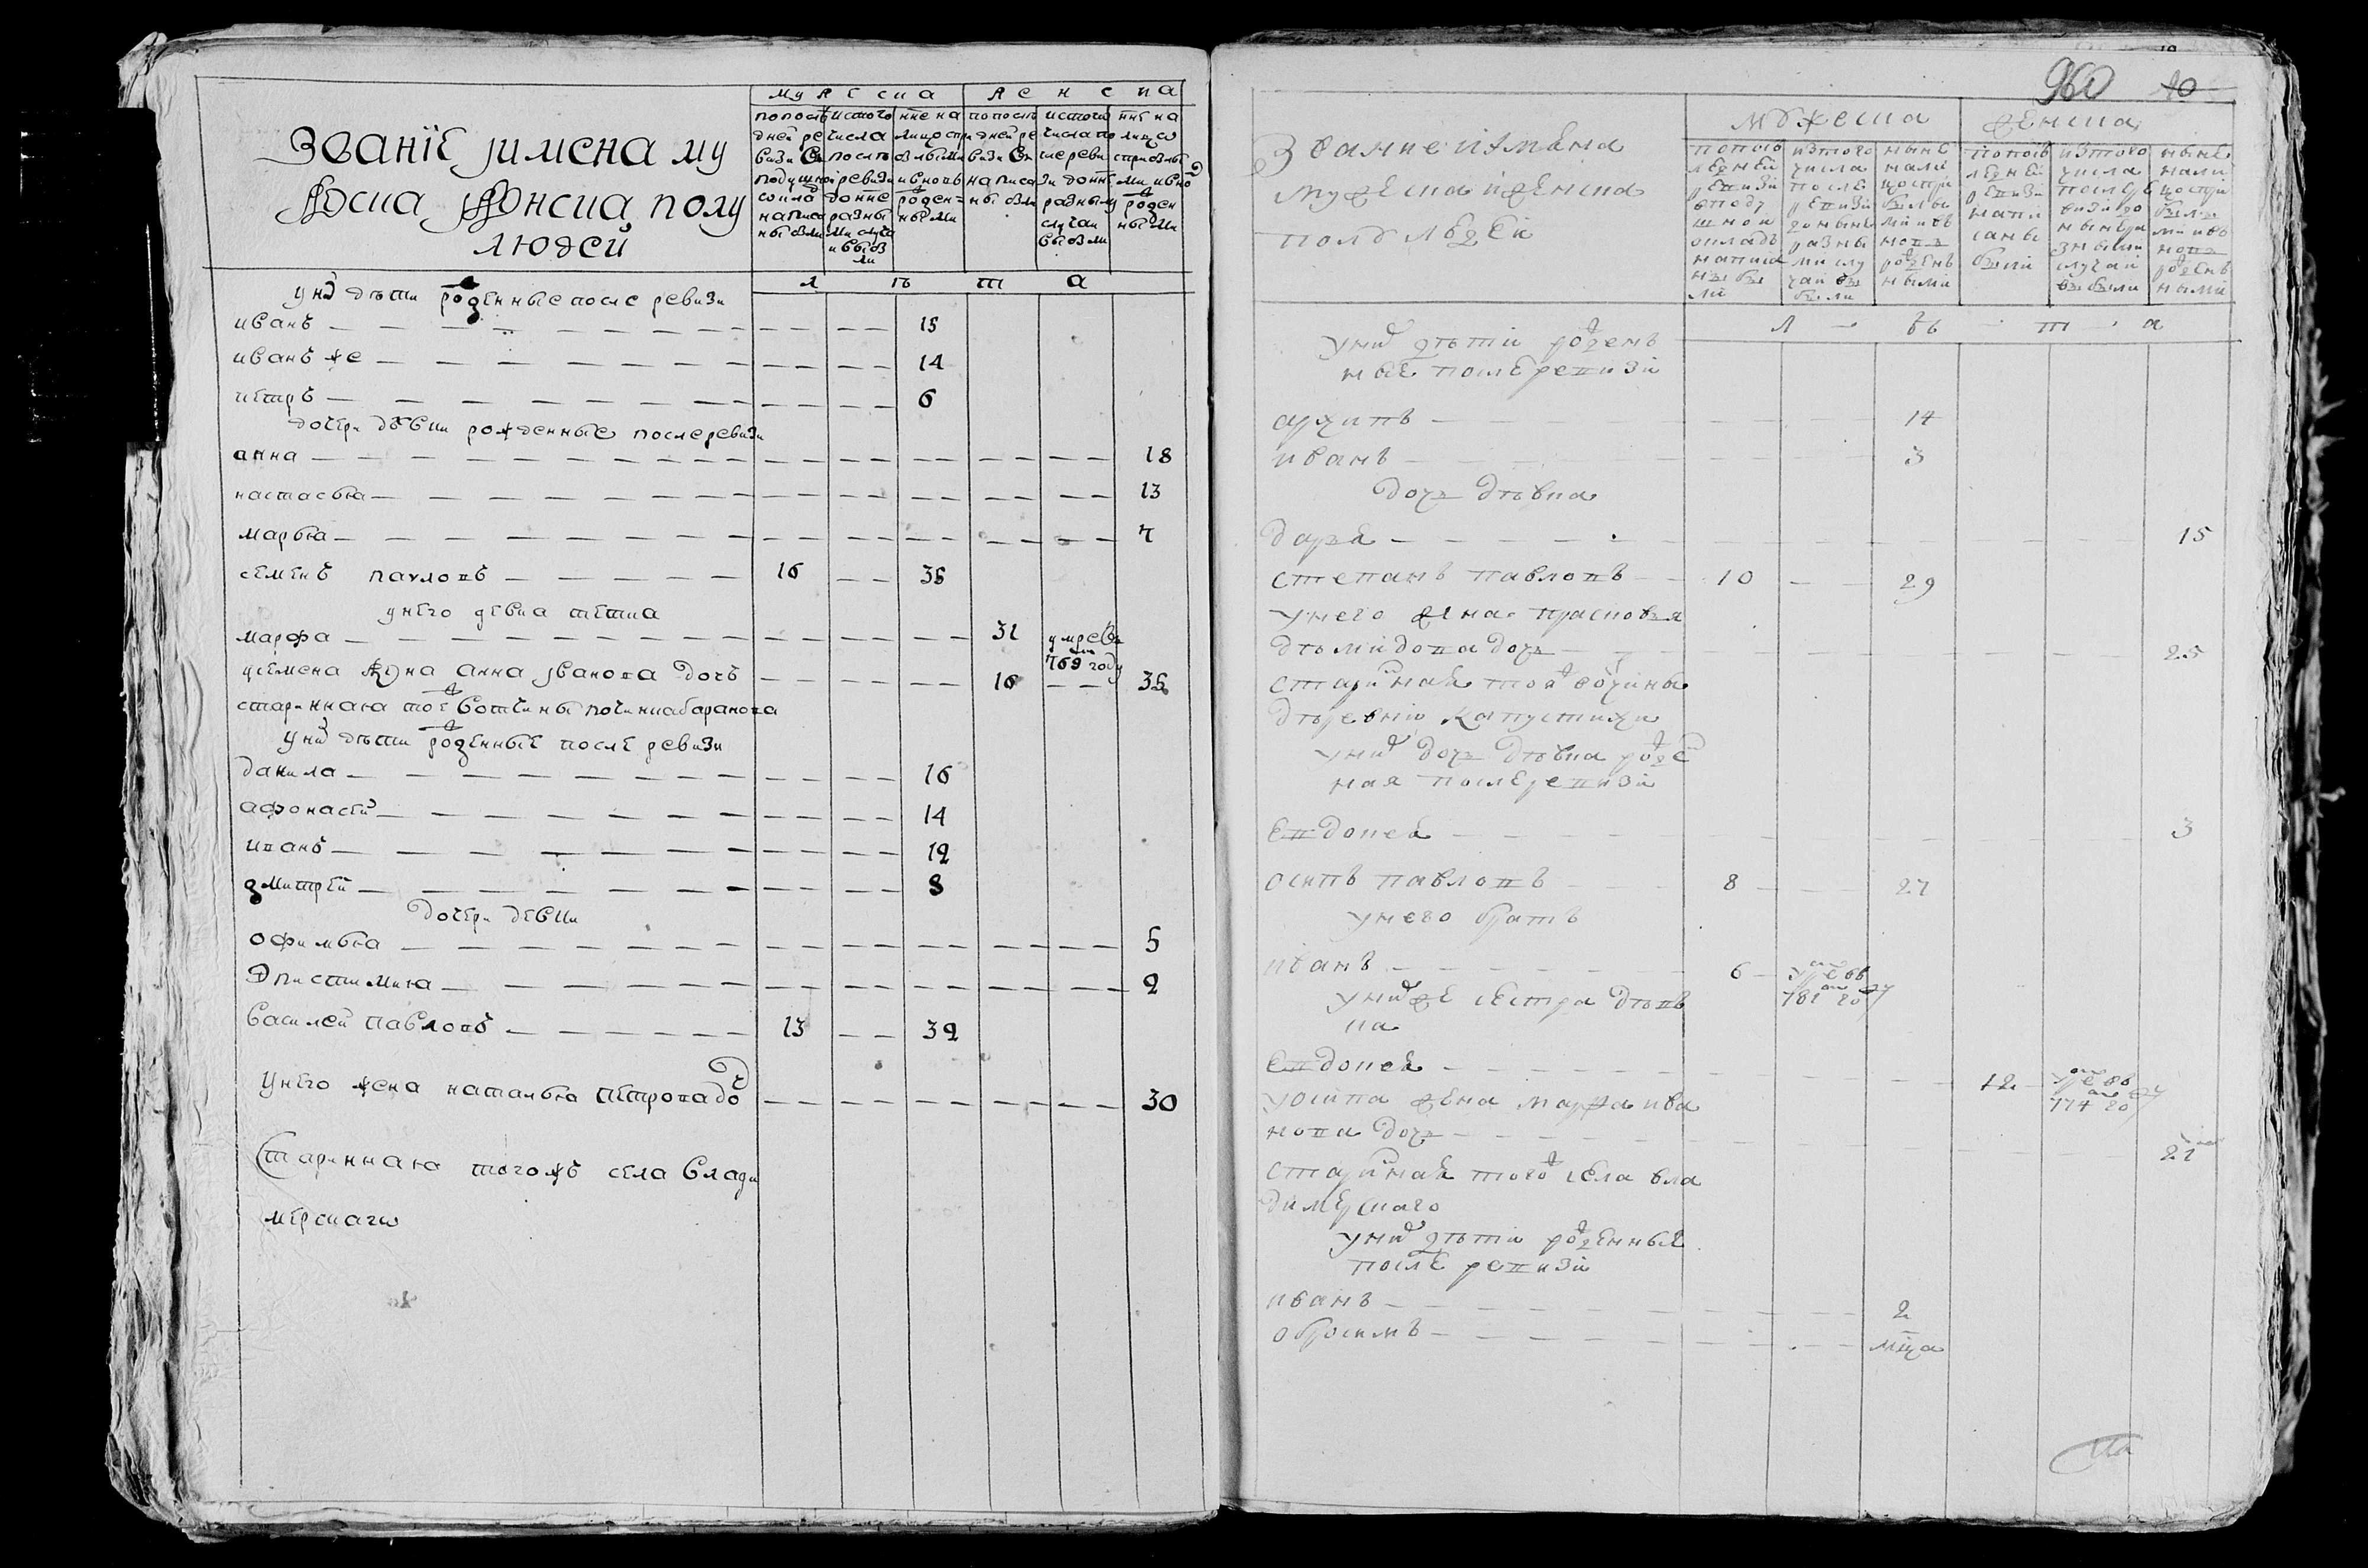 Званїе јимена му
жеска Женска полу
людей
мужеска
женска
попослѣ
дней ре
визи въ
подушно
окла
написа
ны были
истого
числа
послѣ
ревизи
до нне
разны
ми случа
и выбы
ли
нне на
лицо спри
былыми
и вновь
рожден=
ными
попослѣ
дней ре
визи
написа
ны были
истого
числа по
сле реви
зи до нне
разными
случаи
выбыли
нне на
лицо
с прибылы
ми и вно
рожден
ными
л ѣ т а
у них дѣти рожденные после ревизи
иванъ 15
иванъ же 14
петръ 6
дочери дѣвки рожденные после ревизи
анна 18
настасья 13
марья 7
семенъ павловъ 16 35
у него девка тетка
марфа 31 умре въ
769 году
у семена жена анна јванова дочь 16 35
стариннаю тоже вотчины починка баранова
у них дѣти рожденные после ревизи
данила 16
афонасей 14
иванъ 12
дмитрей 8
дочери девки
офимья 5
Эпистимию 2
василей павловъ 13 32
у него жена наталья петрова до 30
стариннаю тогожъ села влади
мерскаго
960 10
Звание и имена
мужеска и женска
полѣ людей
мѣжеска
женска
попослѣ
ледней
ревизи
в поду
шной
окладъ
написа
ны бы
ли
изтого
числа
после
ревизи
до нынѣ
разны
ми слу
чаи вы
были
нынѣ
нали
цо с при
былы
ми и въ
новь
рожденъ
ными
попослѣ
ледней
ревизи
напи
саны
были
изтого
числа
после ре
визи до
ныне ра
зными
случаи
выбыли
ныне
нали
цо с при
былы
ми и въ
новь
рожденъ
ными
л ѣ т а
у них дѣти рожденъ
ные после ревизи
архипъ 14
иванъ 3
дочь дѣвка
дарья 15
степанъ павловъ 10 29
у него жена прасковья
дѣмидова дочь 25
старинная тоя ж вотчины
дѣревни капустихи
у них дочь дѣвка рожде
ная после ревизи
евдокея 3
осипъ павловъ 8 27
у него братъ
иванъ 6 умре въ
781 году
у них же сестра дѣв
ка
евдокея 12 умре въ
774 году
у осипа жена марфа ива
нова дочь 21
старинная того ж села вла
димерскаго
у них дѣти рожденныя
после ревизи
иванъ 2
обросимъ мца